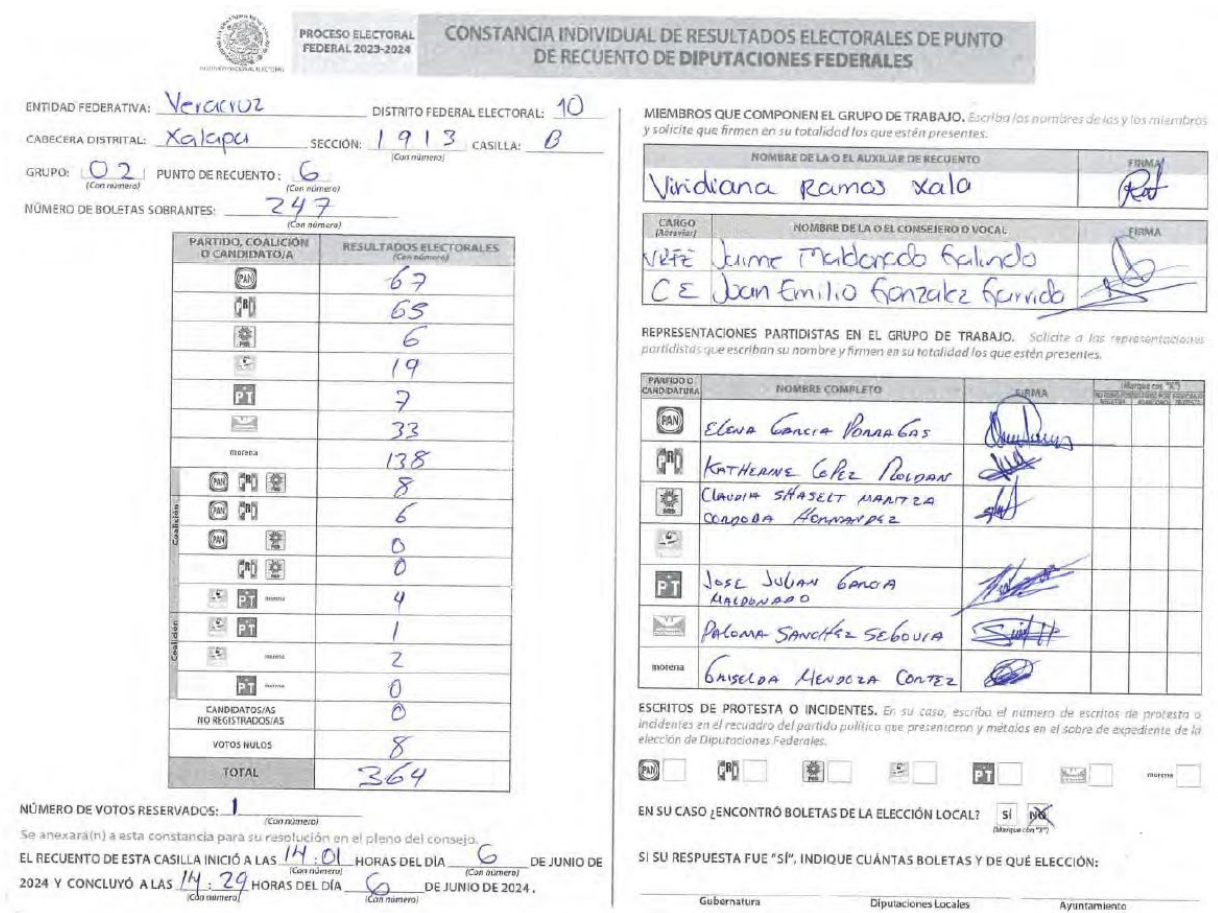 PROCESO ELECTORAL
FEDERAL 2023-2024
CONSTANCIA INDIVIDUAL DE RESULTADOS ELECTORALES DE PUNTO
DE RECUENTO DE DIPUTACIONES FEDERALES
ENTIDAD FEDERATIVA: Veracruz DISTRITO FEDERAL ELECTORAL: 10
CABECERA DISTRITAL: Xalapa SECCIÓN: 1913 CASILLA: B
(Con número)
GRUPO: 02 PUNTO DE RECUENTO: 6
(Con número) (Con número)
NÚMERO DE BOLETAS SOBRANTES: 247
(Con número)
PARTIDO, COALICIÓN O CANDIDATO/A RESULTADOS ELECTORALES
(Con número)
PAN 67
PRI 65
PRD 6
19
PT 7
33
morena 138
Coalición
PAN PRI PRD 8
PAN PRI 6
PAN PRD 0
PRI PRD 0
Coalición
PT morena 4
PT 1
morena 2
PT morena 0
CANDIDATOS/AS
NO REGISTRADOS/AS 0
VOTOS NULOS 8
TOTAL 364
NÚMERO DE VOTOS RESERVADOS: 1
(Con número)
Se anexará(n) a esta constancia para su resolución en el pleno del consejo.
EL RECUENTO DE ESTA CASILLA INICIÓ A LAS 14:01 HORAS DEL DÍA 6 DE JUNIO DE
(Con número) (Con número)
2024 Y CONCLUYÓ A LAS 14:29 HORAS DEL DÍA 6 DE JUNIO DE 2024.
(Con número) (Con número)
MIEMBROS QUE COMPONEN EL GRUPO DE TRABAJO. Escriba los nombres de las y los miembros
y solicite que firmen en su totalidad los que estén presentes.
NOMBRE DE LA O EL AUXILIAR DE RECUENTO FIRMA
Viridiana Ramos Xala
CARGO
(Abreviar) NOMBRE DE LA O EL CONSEJERO O VOCAL FIRMA
Jaime Maldonado Galindo
CE Juan Emilio Gonzalez Garrido
REPRESENTACIONES PARTIDISTAS EN EL GRUPO DE TRABAJO. Solicite a las representaciones
partidistas que escriban su nombre y firmen en su totalidad los que estén presentes.
PARTIDO O
CANDIDATURA NOMBRE COMPLETO FIRMA (Marque con "X")
PAN ELENA GARCIA PORRAGAS
PRI KATHERINE LOPEZ ROLDAN
PRD CLAUDIA SHASELT MARITZA
CORDOBA HERNANDEZ
PT JOSE JULIAN GARCIA
MALDONADO
PALOMA SANCHEZ SEGOVIA
morena GRISELDA MENDOZA CORTEZ
ESCRITOS DE PROTESTA O INCIDENTES. En su caso, escriba el número de escritos de protesta o
incidentes en el recuadro del partido político que presentaron y métalos en el sobre de expediente de la
elección de Diputaciones Federales.
PAN PRI PRD PT morena
EN SU CASO ¿ENCONTRÓ BOLETAS DE LA ELECCIÓN LOCAL? SÍ NO
(Marque con "X")
SI SU RESPUESTA FUE "SÍ", INDIQUE CUÁNTAS BOLETAS Y DE QUÉ ELECCIÓN:
Gubernatura Diputaciones Locales Ayuntamiento